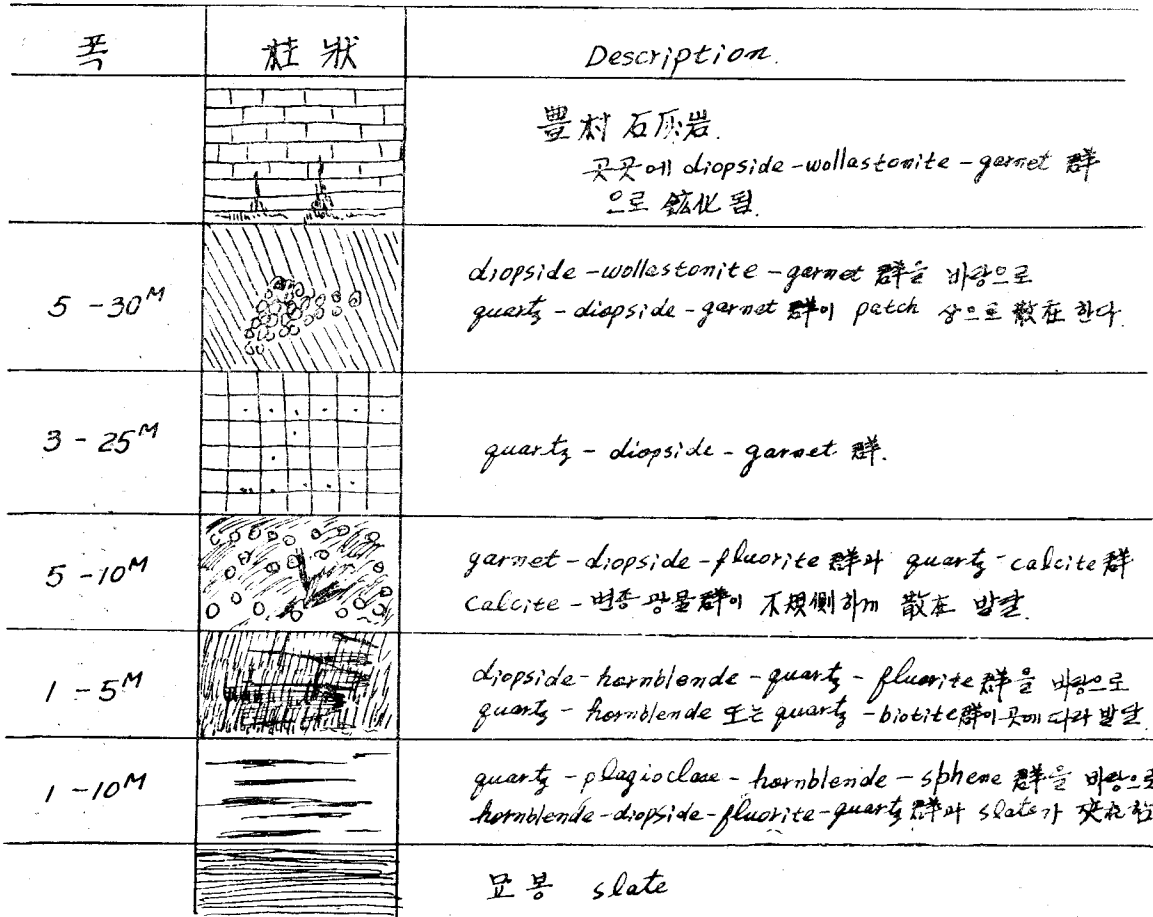 폭 柱狀 Description.
豊村 石灰岩.
곳곳에 diopside-wollastonite-garnet 群
으로 鉱化 됨.
5 - 30M
diopside-wollastonite-garnet 群을 바탕으로
quartz-diopside-garnet 群이 patch 상으로 散在 한다.
3 - 25M
quartz - diopside - garnet 群.
5 - 10M
garnet-diopside-fluorite 群과 quartz-calcite 群
calcite - 변종 광물群이 不規側하게 散在 발달.
1 - 5M
diopside-hornblende-quartz-fluorite 群을 바탕으로
quartz-hornblende 또는 quartz-biotite群이 곳에 따라 발달
1 - 10M
quartz-plagioclase-hornblende-sphene 群을 바탕으로
hornblende-diopside-fluorite-quartz 群과 slate가
묘봉 slate